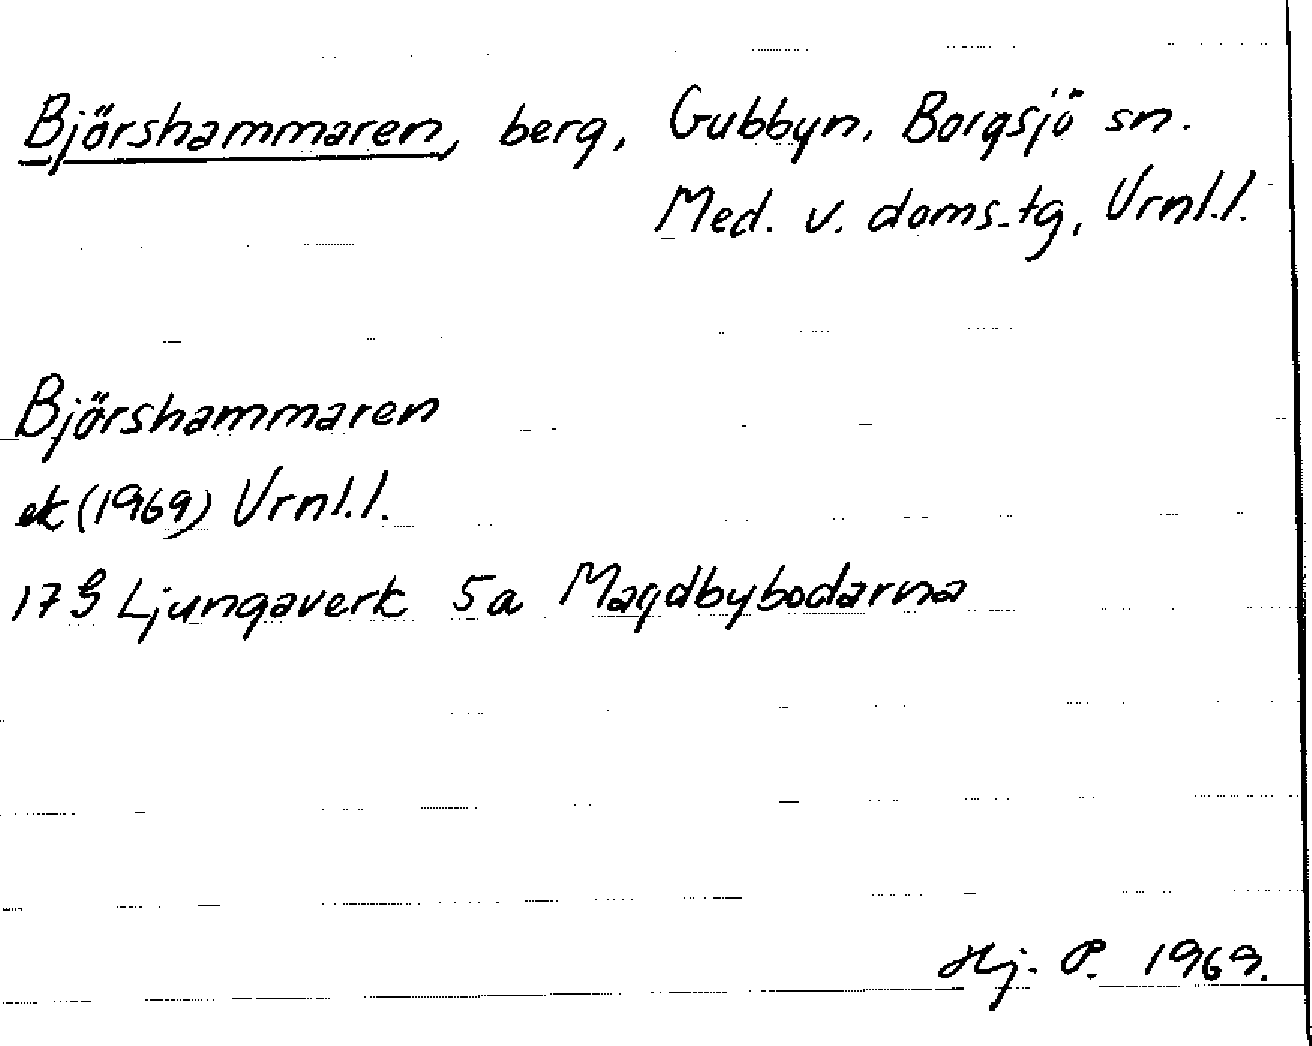 Björshammaren, berg, Gubbyn, Borgsjö sn.
Med. v. doms.tg, Vrnl.l.
Björshammaren
ek (1969) Vrnl.l.
17G Ljungaverk 5a Magdbybodarna
Hj. P. 1969.